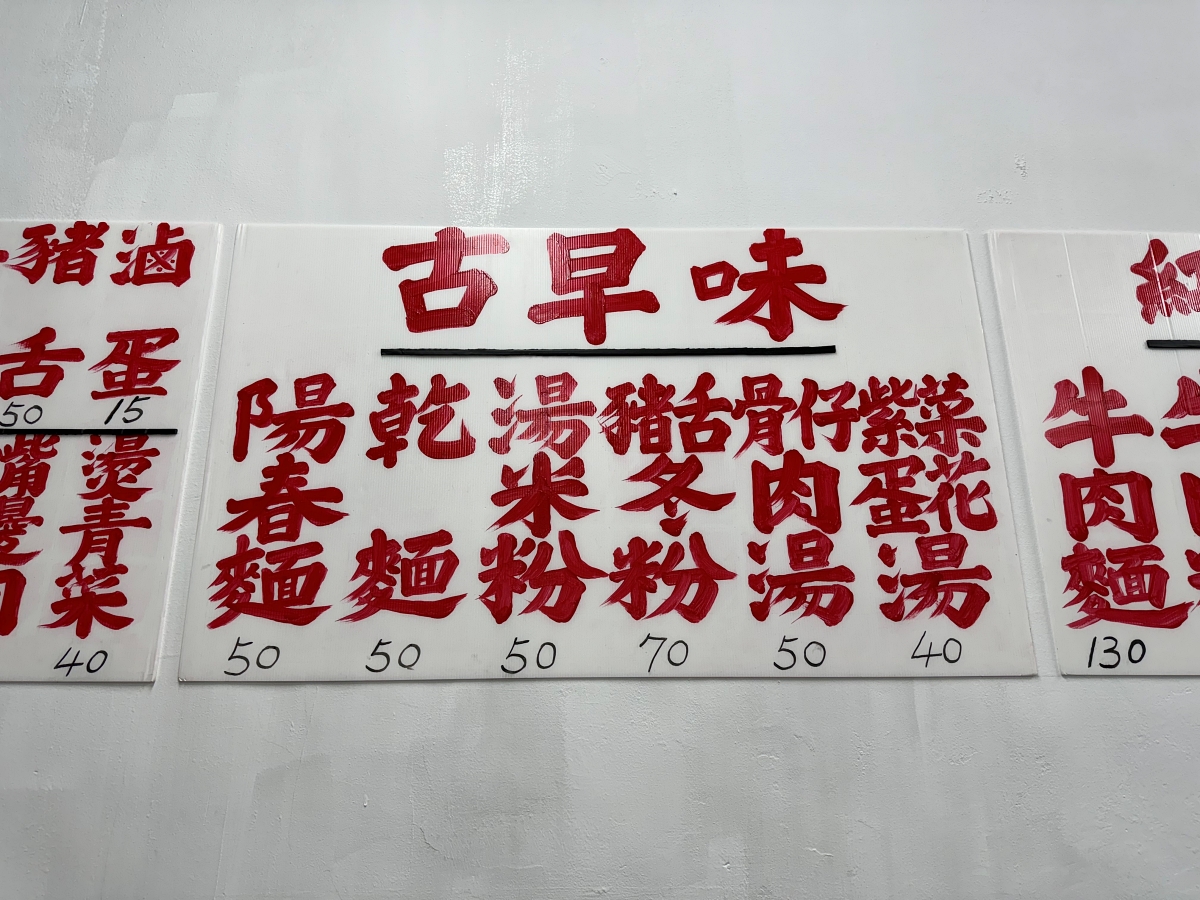 豬舌
50
滷蛋
15
嘴邊
燙青菜
40
古早味
陽春麵
50
乾麵
50
湯米粉
50
豬舌冬粉
70
骨仔肉湯
50
紫菜蛋花湯
40
牛肉麵
130